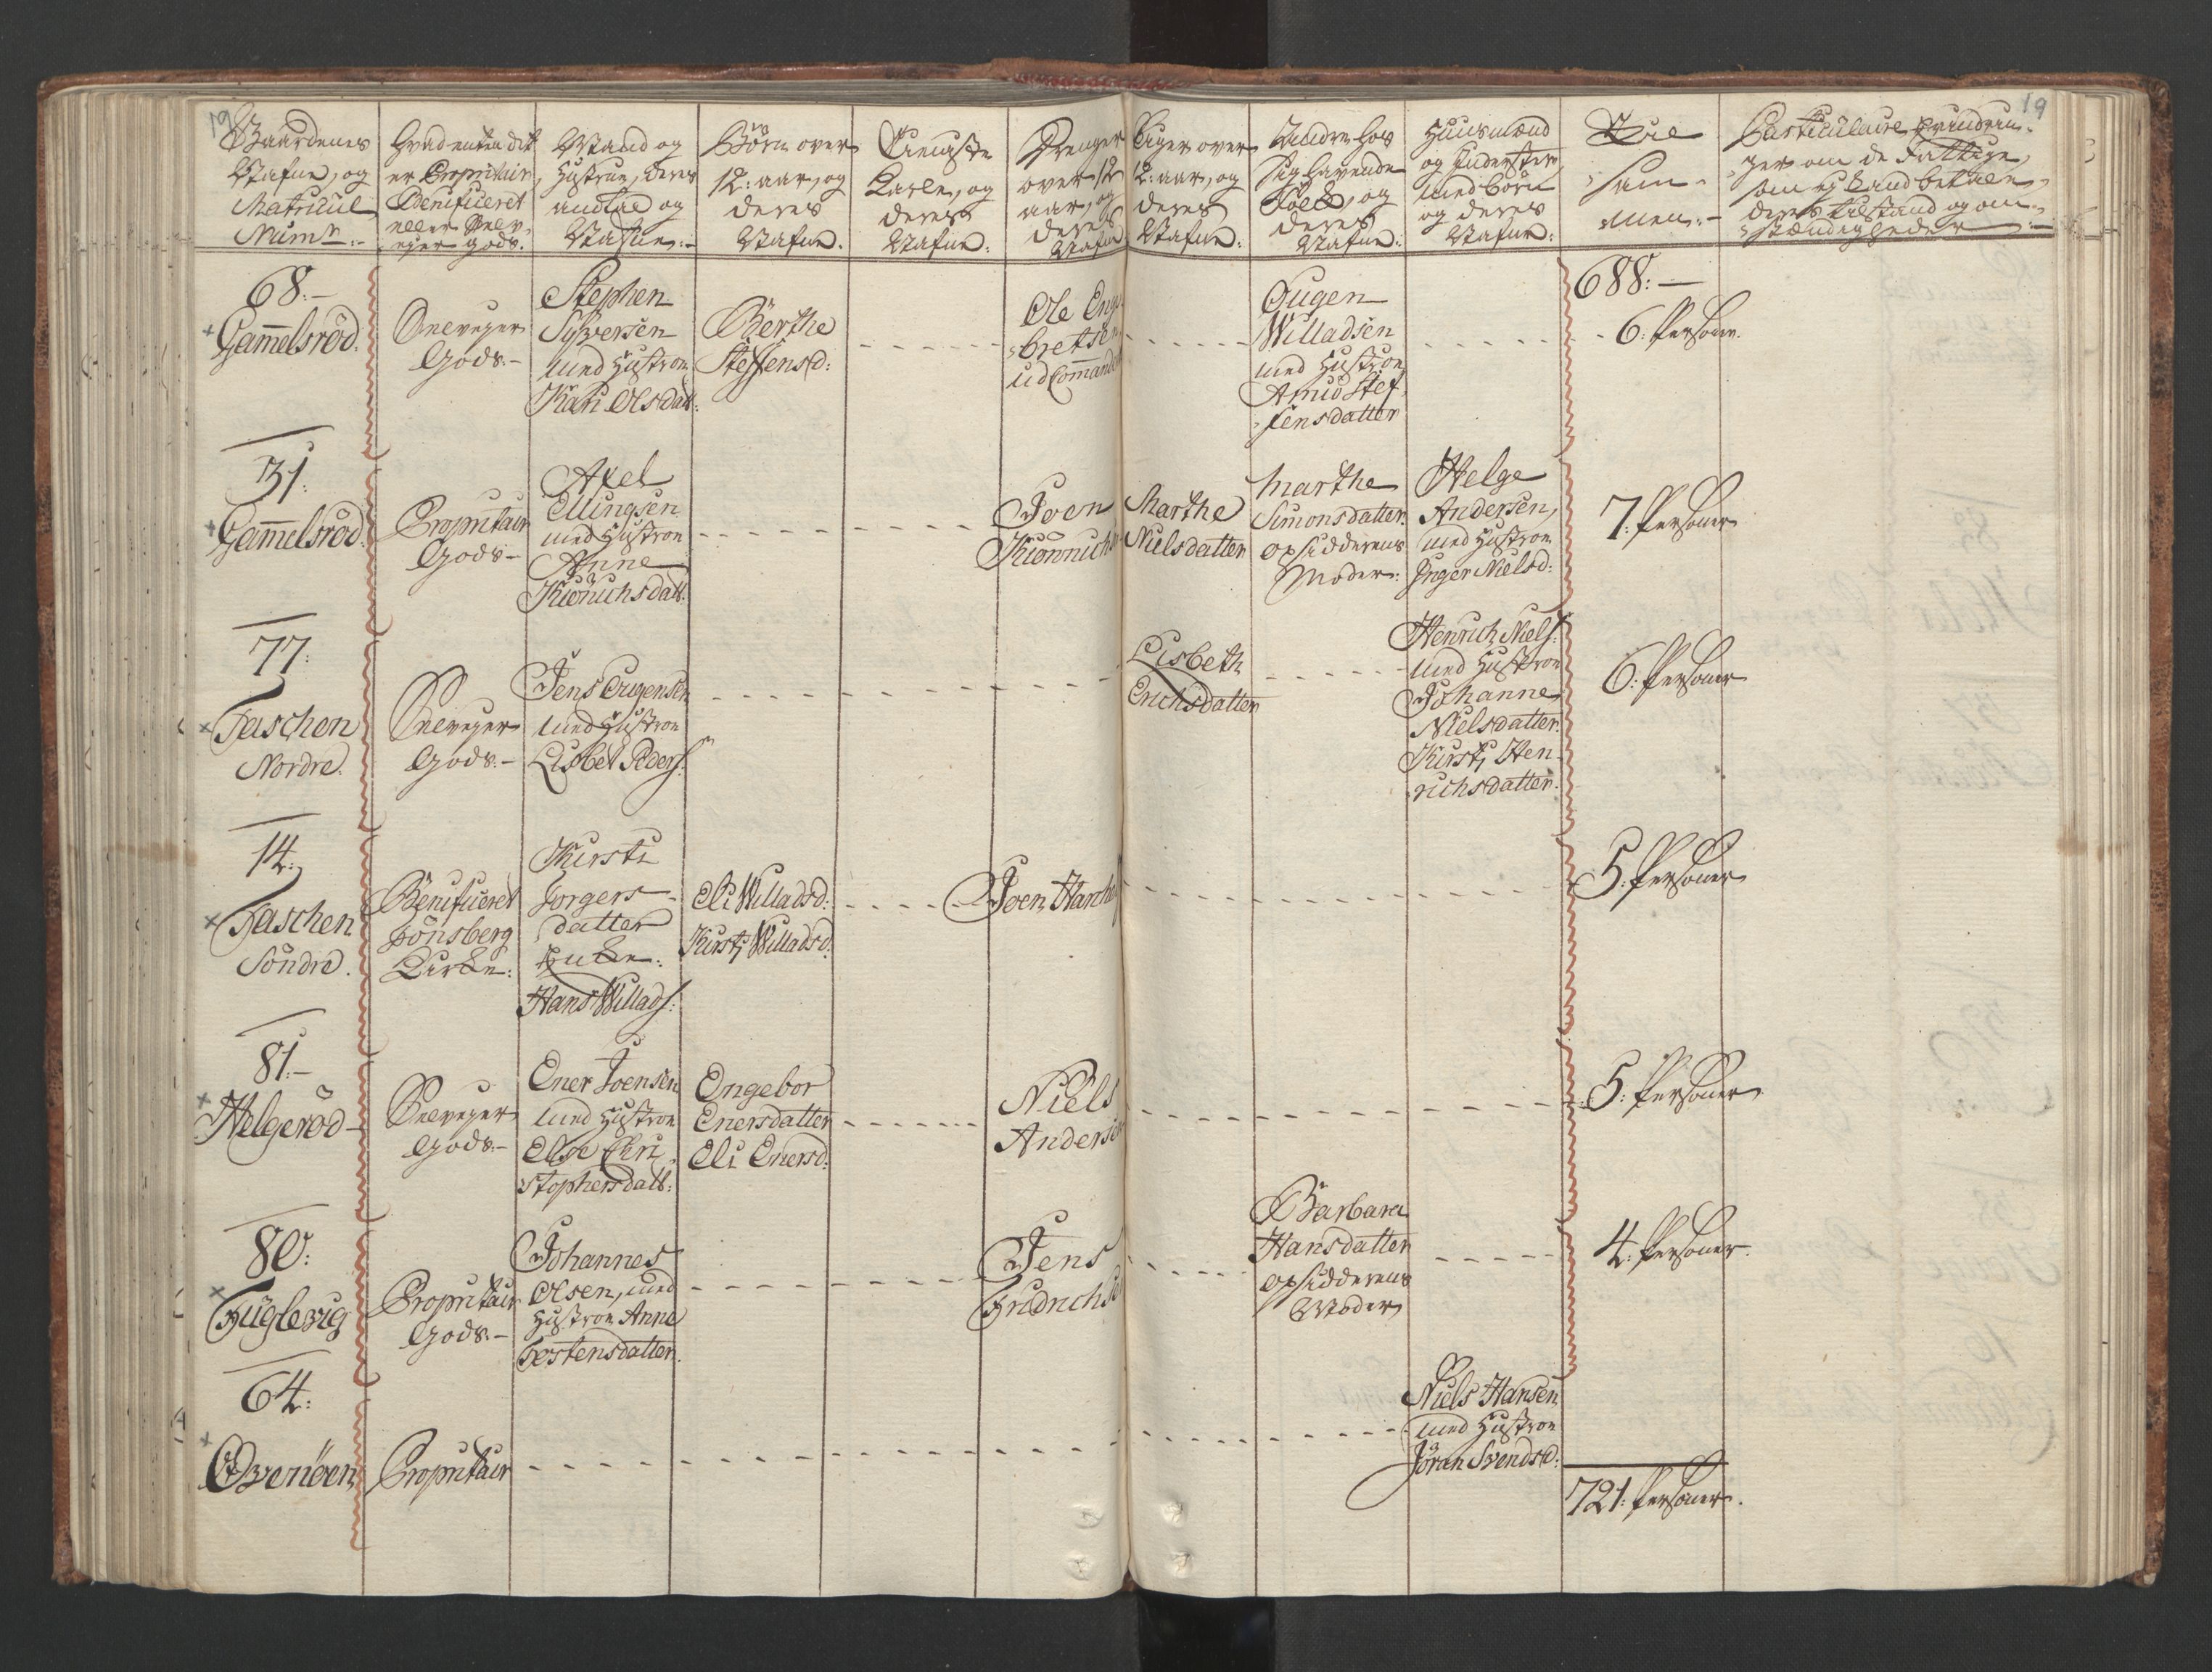 19
Gaardenes
Nafne, og
Matricul
Num<sup>r</sup>:-
hvad enten det
er Propritair,
Benificeret
eller Selv-
eyer gods.
Mand og
Hustrue, deres
andtal og
Nafne:-
Börn over
12: aar, og
deres
Nafne.
Tieniste
Karle, og
deres
Nafne:
Drenger
over 12
aar, og
deres
Nafne
Piger over
12: aar, og
deres
Nafne:
Andre hos
sig havende
Folck, og
deres
Nafne:
Huusmænd
og Inderster,
med börn
og deres
Nafne:
Til
sam-
men:-
19
Particulaire
-ger om de Fattige,
som ej kand betale,
deres tilstand og om-
-stændigheder:-
68:-
Gam̄elsröd.
Selveyer
Gods:-
Stephen
Syversen
med Hustroe
Kari Olsdatt:
Berthe
Steffensd:
Ole Eng-
-bretsen
udCom̄ander
Ougen
Willadsen
med Hustroe
Stef-
-fensdatter
688:-
6: Persohner.
31:
Gam̄elsröd.
Propritair
Gods-
Axel
Ellingsen
med Hustroe
Anne
Kiönichsdatt:
Joen
Kiönnich
Marthe
Nielsdatter
Marthe
Simonsdatter
opsidderens
Moder:
Helge
Andersen,
med Hustroe
Inger Nielsd:
7: Persohner
77:
Taschen
Nordre.
Selveyer
Gods.-
Jens Ougensen
med Hustroe
Lisbet Peders:
Lisbeth
Erichsdatter
Henrich Niels:
med Hustroe
Johanne
Nielsdatter.
Kirsti Hen-
-richsdatter.
6: Persohner
14:
Taschen
Söndre.
Benificeret
Tönsberg
Kirke:
Kirsti
Jorgers-
datter
Enke:
Hans Willads:
Eli Willadsd:
Kirsti Willadsd:
Joen Hanche
5: Persohner
81:-
Helgeröd-
Selveyer
Gods:-
Ener Joensen
med Hustroe
Else Chri-
stophersdatt:
Engebor
Enersdatter
Eli Enersd:
Niels
Andersen
5: Persohner
80:
Fuglevig
Propritair
Gods:-
Johannes
Olsen, med
Hustroe Anne
Tostensdatter.
Jens
Fridrichsen
Barbara
Hansdatter
opsidderens
Moder
4: Persohner.
64:
Propritair
Niels Hansen
med Hustroe
Jöran Svendsd:
721: Persohner.